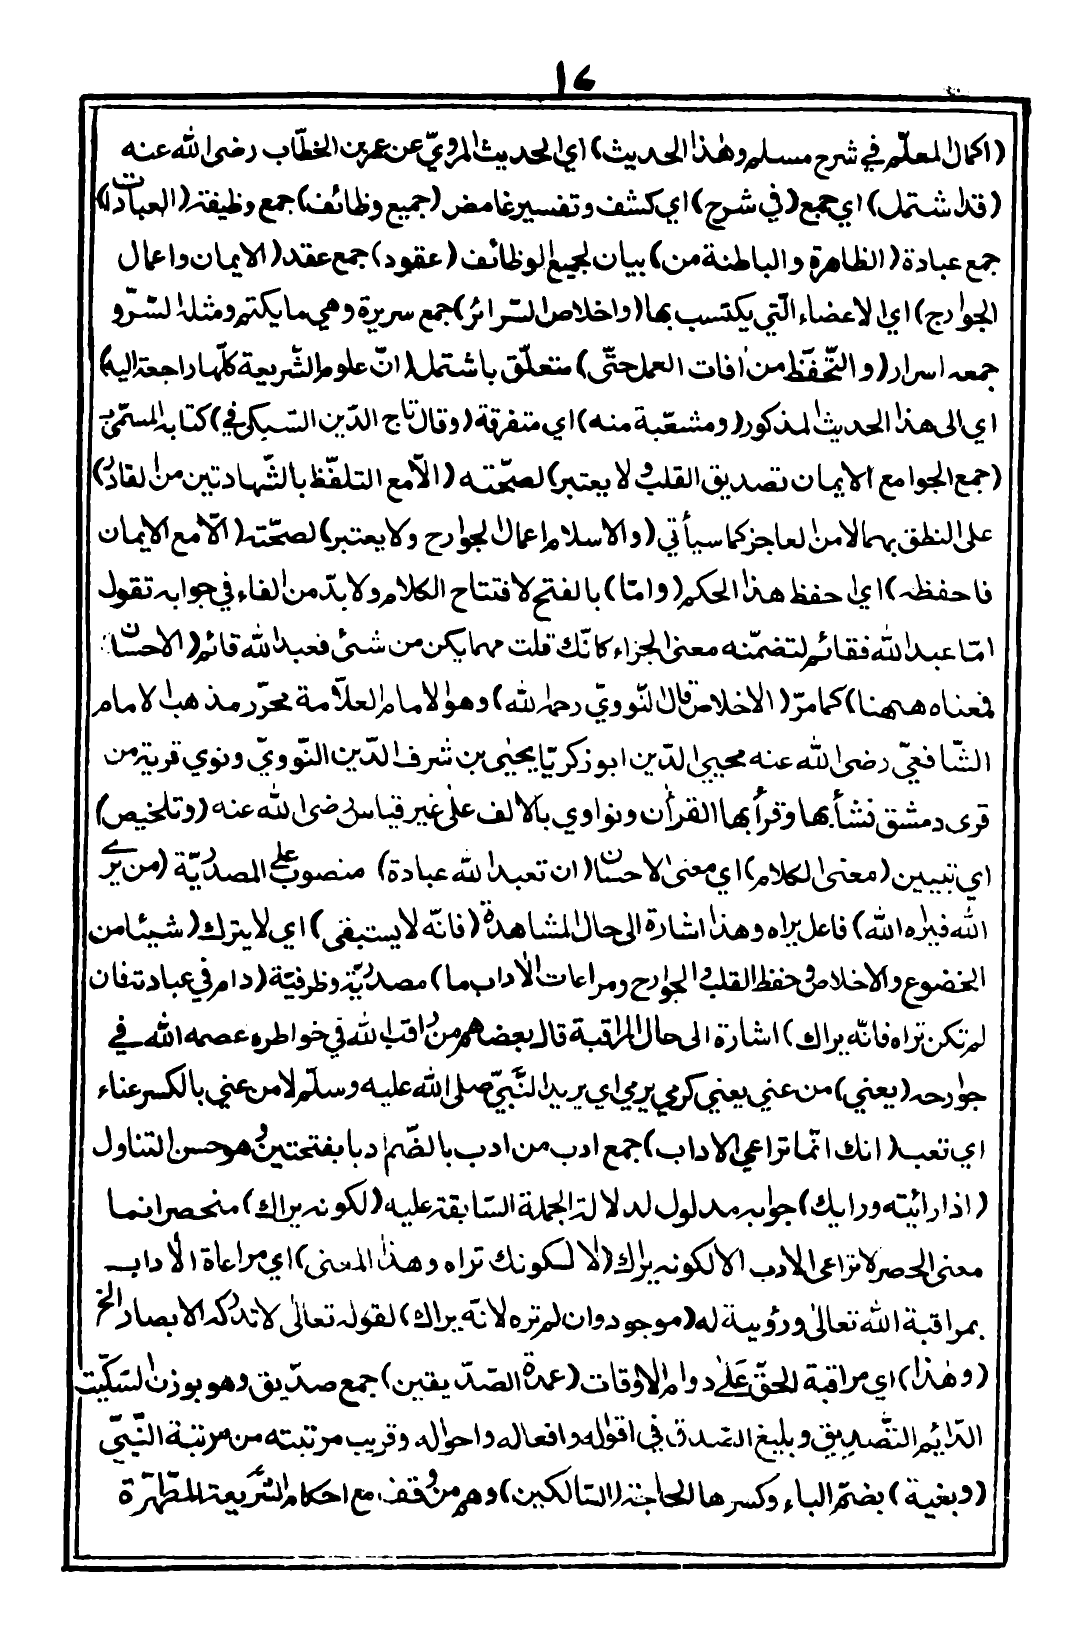 ١٤
(اكمال المعلّم في شرح مسلم وهٰذا الحديث) اي الحديث المرويّ عن عمر بن الخطّاب رضى الله عنه
(قد اشتمل) اي جمع (في شرح) اي كشف وتفسير غامض (جميع وظائف) جمع وظيفة (العبادات)
جمع عبادة (الظاهرة والباطنة من) بيان لجميع الوظائف (عقود) جمع عقد (الايمان واعمال
الجوارح) اي الاعضاء الّتي يكتسب بها (واخلاص السّرائر) جمع سريرة وهي ما يكتم ومثله السّرّ و
جمعه اسرار (والتّحفّظ من اٰفات العمل حتّى) متعلّق باشتمل (انّ علوم الشّريعة كلّها راجعة اليه)
اي الى هذا الحديث المذكور (ومشعّبة منه) اي متفرقة (وقال تاج الدّين السّبكى في) كتابه المسمّى بـ
(جمع الجوامع الايمان تصديق القلب و لا يعتبر) لصحّته (الّا مع التلفّظ بالشّهادتين من القادر)
على النطق بهما لا من العاجز كما سيأتي (والاسلام اعمال الجوارح ولا يعتبر) لصحّته (الّا مع الايمان
فاحفظه) اي احفظ هذا الحكم (وامّا) بالفتح لافتتاح الكلام ولا بدّ من الفاء في جوابه تقول
امّا عبد الله فقائم لتضمّنه معنى الجزاء كانّك قلت مهما يكن من شئ فعبد الله قائم (الاحسان
فمعناه ههنا) كما مرّ (الاخلاص قال النّوويّ رحمه الله) وهو الامام العلّامة محرّر مذهب الامام
الشّافعيّ رضى الله عنه محيي الدّين ابو زكريّا يحيٰى بن شرف الدّين النّوويّ ونوي قرية من
قرى دمشق نشأ بها وقرأ بها القراٰن ونواوي بالالف علٰى غير قياس رضى الله عنه (وتلخيص)
اي تبيين (معنى الكلام) اي معنى الاحسان (ان تعبد الله عبادة) منصوب على المصدريّة (من يرى
الله فيراه الله) فاعل يراه وهذا اشارة الى حال المشاهدة (فانّه لا يستبقى) اي لا يترك (شيئا من
الخضوع والاخلاص وحفظ القلب والجوارح ومراعات الاٰداب ما) مصدريّة وظرفيّة (دام في عبادته فان
لم تكن تراه فانّه يراك) اشارة الى حال المراقبة قال بعضهم من راقب الله في خواطره عصمه الله في
جوارحه (يعني) من عني يعني كرمي يرمي اي يريد النّبيّ صلى الله عليه وسلّم لا من عني بالكسر عناء
اي تعب (انك انّما تراعي الاداب) جمع ادب من ادب بالضّم ادبا بفتحتين وهو حسن التناول
(اذا رائيته ورايك) جوابه مدلول لدلالة الجملة السّابقة عليه (لكونه يراك) منحصر انما
معنى الحصر لا تراعى الادب الا لكونه يراك (لا لكونك تراه وهذا المعنى) اي مراعاة الاٰداب
بمراقبة الله تعالٰى ورؤيية له (موجود وان لم تره لانّه يراك) لقوله تعالٰى لا تدركه الابصار الخ
(وهٰذا) اي مراقبة الحقّ عَلٰى دوام الاوقات (عمدة الصّدّيقين) جمع صدّيق وهو بوزن السّكّيت
الدّايم التّصديق وبليغ الصّدق في اقواله وافعاله واحواله وقريب مرتبته من مرتبة النّبيّ
(وبغية) بضمّ الباء وكسرها الحاجة (السّالكين) وهم من وقف مع احكام الشّريعة المطهّرة